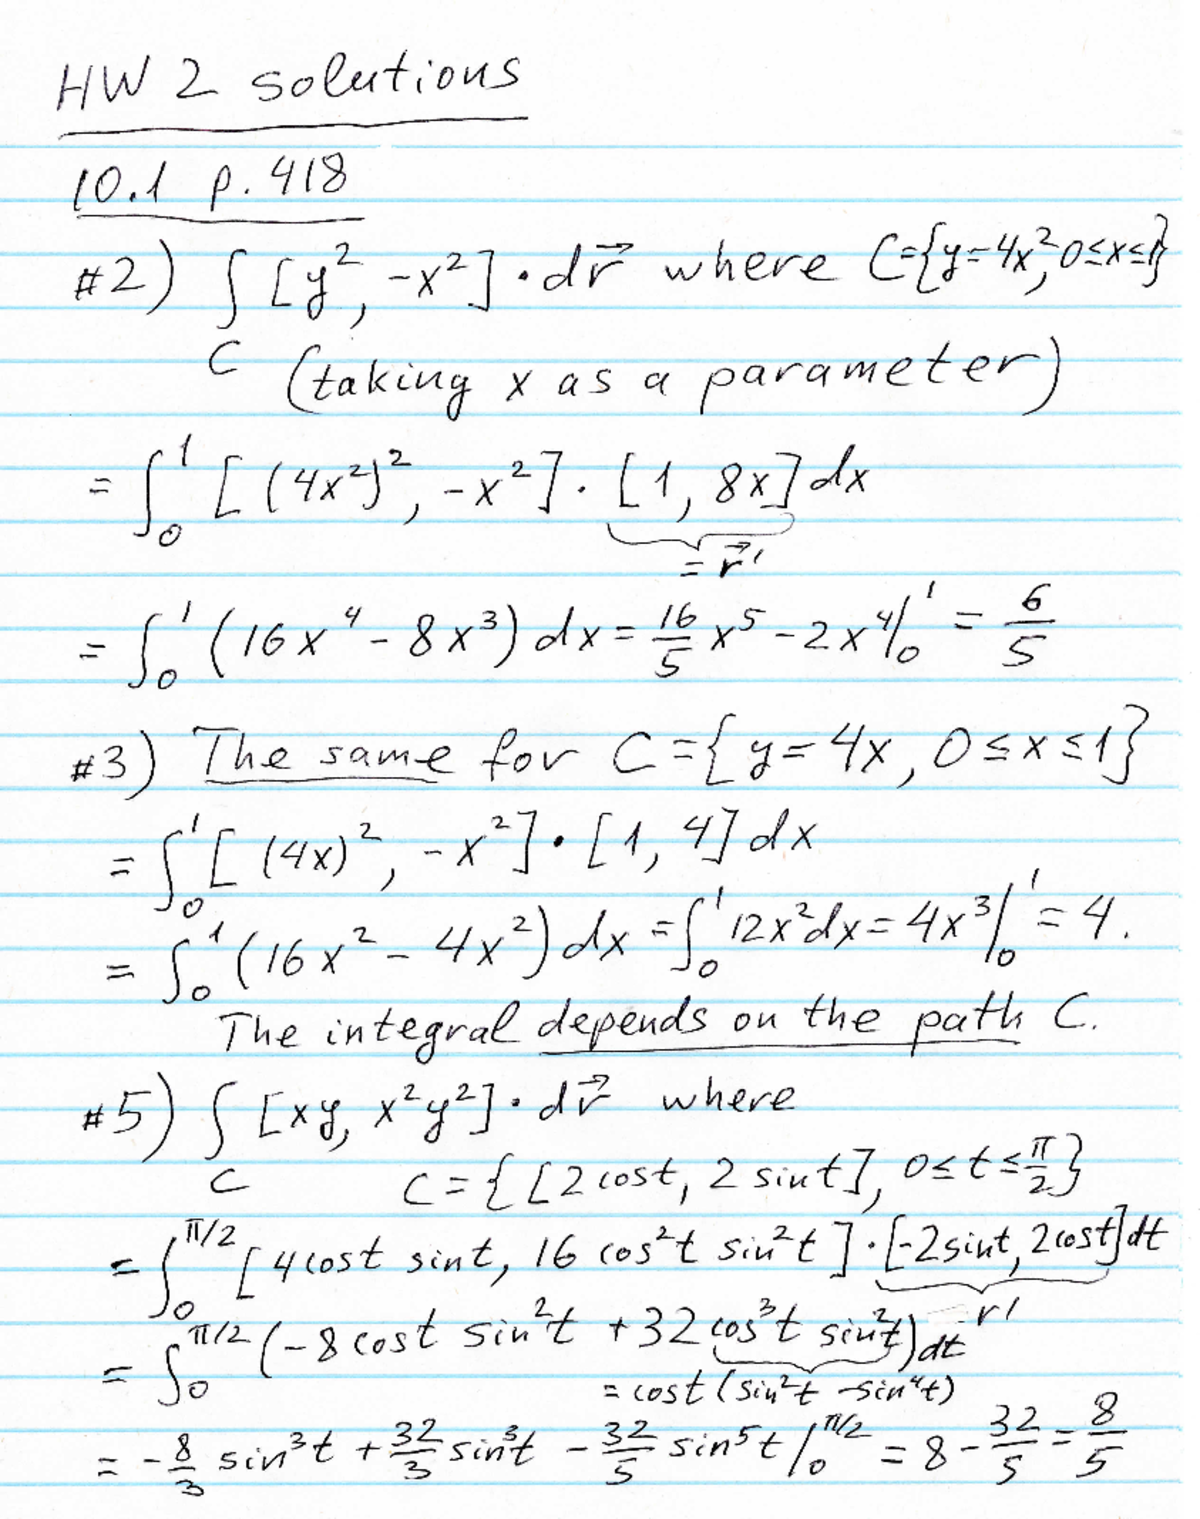 HW 2 solutions
10.1 p. 418
#2) ∫_C [y², -x²] · dr⃗ where C={y=4x², 0≤x≤1}
(taking x as a parameter)
= ∫₀¹ [(4x²)², -x²] · [1, 8x] dx
= r⃗'
= ∫₀¹ (16x⁴ - 8x³) dx = 16/5 x⁵ - 2x⁴ |₀¹ = 6/5
#3) The same for C={y=4x, 0≤x≤1}
= ∫₀¹ [(4x)², -x²] · [1, 4] dx
= ∫₀¹ (16x² - 4x²) dx = ∫₀¹ 12x² dx = 4x³ |₀¹ = 4.
The integral depends on the path C.
#5) ∫_C [xy, x²y²] · dr⃗ where
C={[2cost, 2sint], 0≤t≤π/2}
= ∫₀^{π/2} [4cost sint, 16cos²t sin²t] · [-2sint, 2cost] dt
r'
= ∫₀^{π/2} (-8cost sin²t + 32cos³t sin²t) dt
= cost(sin²t - sin⁴t)
= -8/3 sin³t + 32/3 sin³t - 32/5 sin⁵t |₀^{π/2} = 8 - 32/5 = 8/5